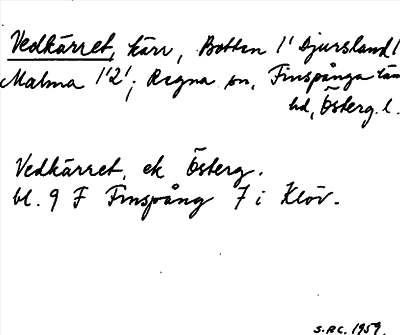 Vedkärret, kärr, Botten 1' Djursland 1
Malma 1'2'; Regna sn, Finspånga läns
hd, Österg. l.
Vedkärret, ek Österg.
bl. 9 F Finspång 7 i Klöv.
S.P.C. 1959.